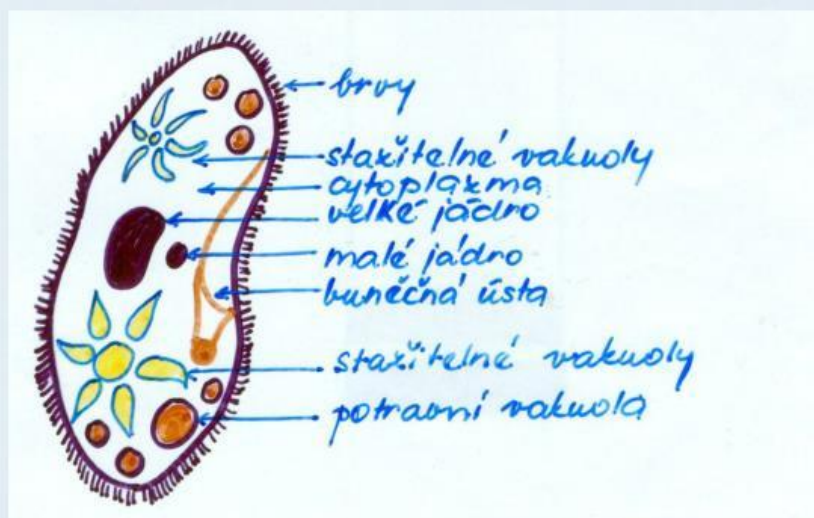 brvy
stažitelné vakuoly
cytoplazma
velké jádro
malé jádro
buněčná ústa
stažitelné vakuoly
potravní vakuola